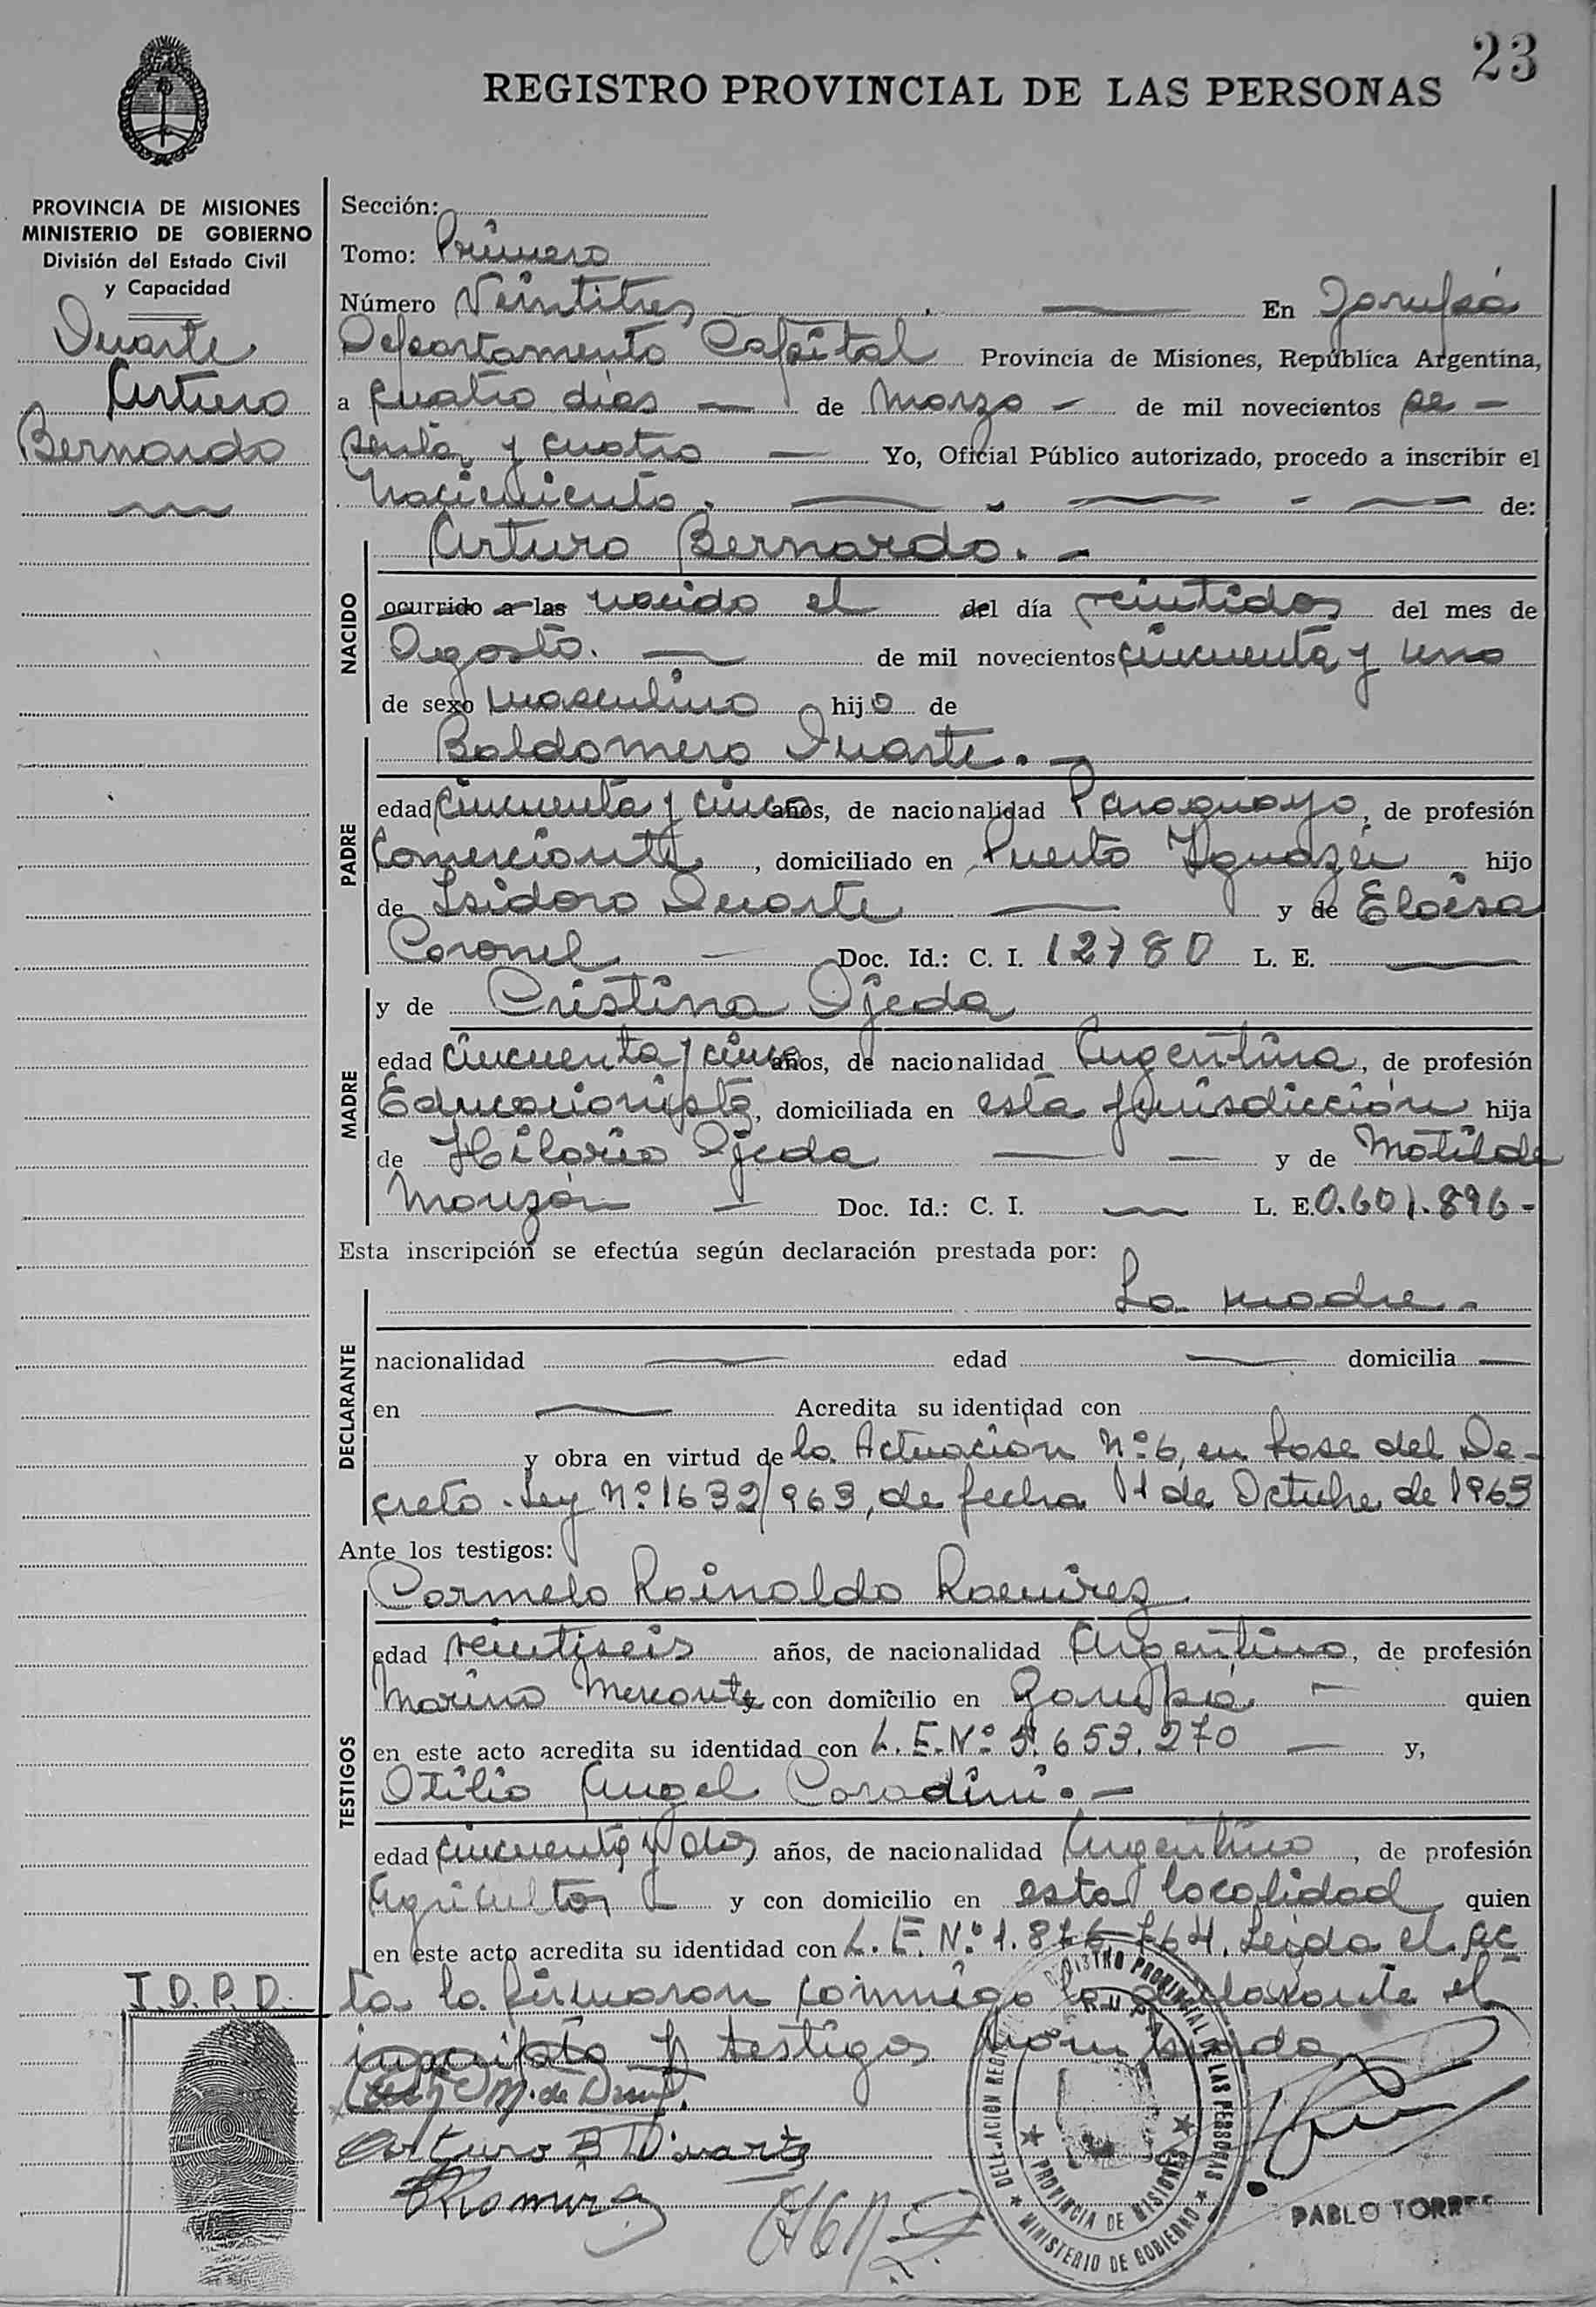 23
REGISTRO PROVINCIAL DE LAS PERSONAS
PROVINCIA DE MISIONES
MINISTERIO DE GOBIERNO
División del Estado Civil
y Capacidad
Duarte
Arturo
Bernardo
Sección:
Tomo: Primero
Número Veintitres En Garupá
Departamento Capital Provincia de Misiones, República Argentina,
a cuatro dias de Marzo de mil novecientos se-
senta y cuatro Yo, Oficial Público autorizado, procedo a inscribir el
Nacimiento. de:
Arturo Bernardo. -
NACIDO
ocurrido a las nacido el del día veintidos del mes de
Agosto. de mil novecientos cincuenta y uno
de sexo masculino hijo de
Baldomero Duarte. -
PADRE
edad cincuenta y cinco años, de nacionalidad Paraguayo, de profesión
Comerciante, domiciliado en Puerto Yguazú hijo
de Isidoro Duarte y de Eloisa
Coronel Doc. Id.: C. I. 12780 L. E.
MADRE
y de Cristina Ojeda
edad cincuenta y cinco años, de nacionalidad Argentina, de profesión
Educacionista, domiciliada en esta jurisdicción hija
de Hilario Ojeda y de Matilde
Monzón Doc. Id.: C. I. L. E. 0.601.896-
Esta inscripción se efectúa según declaración prestada por:
La madre. -
DECLARANTE
nacionalidad edad domicilia
en Acredita su identidad con
y obra en virtud de la Actuación Nº 6, en base del De-
creto-Ley Nº 1632/963, de fecha 11 de Octubre de 1963
Ante los testigos:
TESTIGOS
Carmelo Rainaldo Ramirez
edad veintiseis años, de nacionalidad Argentino, de profesión
Marino Mercante y con domicilio en Garupá quien
en este acto acredita su identidad con L. E. Nº 5.653.270 y,
Otilio Angel Coradini. -
edad cincuenta y dos años, de nacionalidad Argentino, de profesión
Agricultor y con domicilio en esta localidad quien
en este acto acredita su identidad con L. E. Nº 1.876.764. Leida el ac
ta la firmaron conmigo la declarante el
inscripto y testigos nombrado
I.D.P.D.
M. de
Arturo B Duarte
Ramirez
REGISTRO PROVINCIAL DE LAS PERSONAS
PROVINCIA DE MISIONES
MINISTERIO DE GOBIERNO
PABLO TORRES